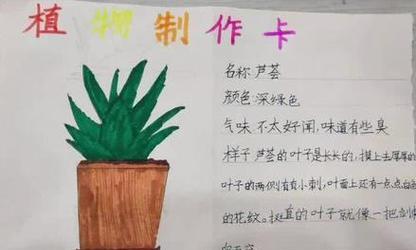 植物制作卡
名称 芦荟
颜色 深绿色
气味 不太好闻,味道有些臭
样子 芦荟的叶子是长长的,摸上去厚厚的
叶子的两侧有小刺,叶面上还有一点点白色
的花纹。挺直的叶子就像一把剑
向天空